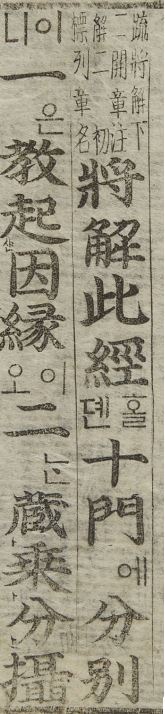 疏將解下
二開章注
解二 初
標列章名
將解此經홀뎬十門에分別
이니一은教起因緣이오二ᄂᆞᆫ藏乘分攝